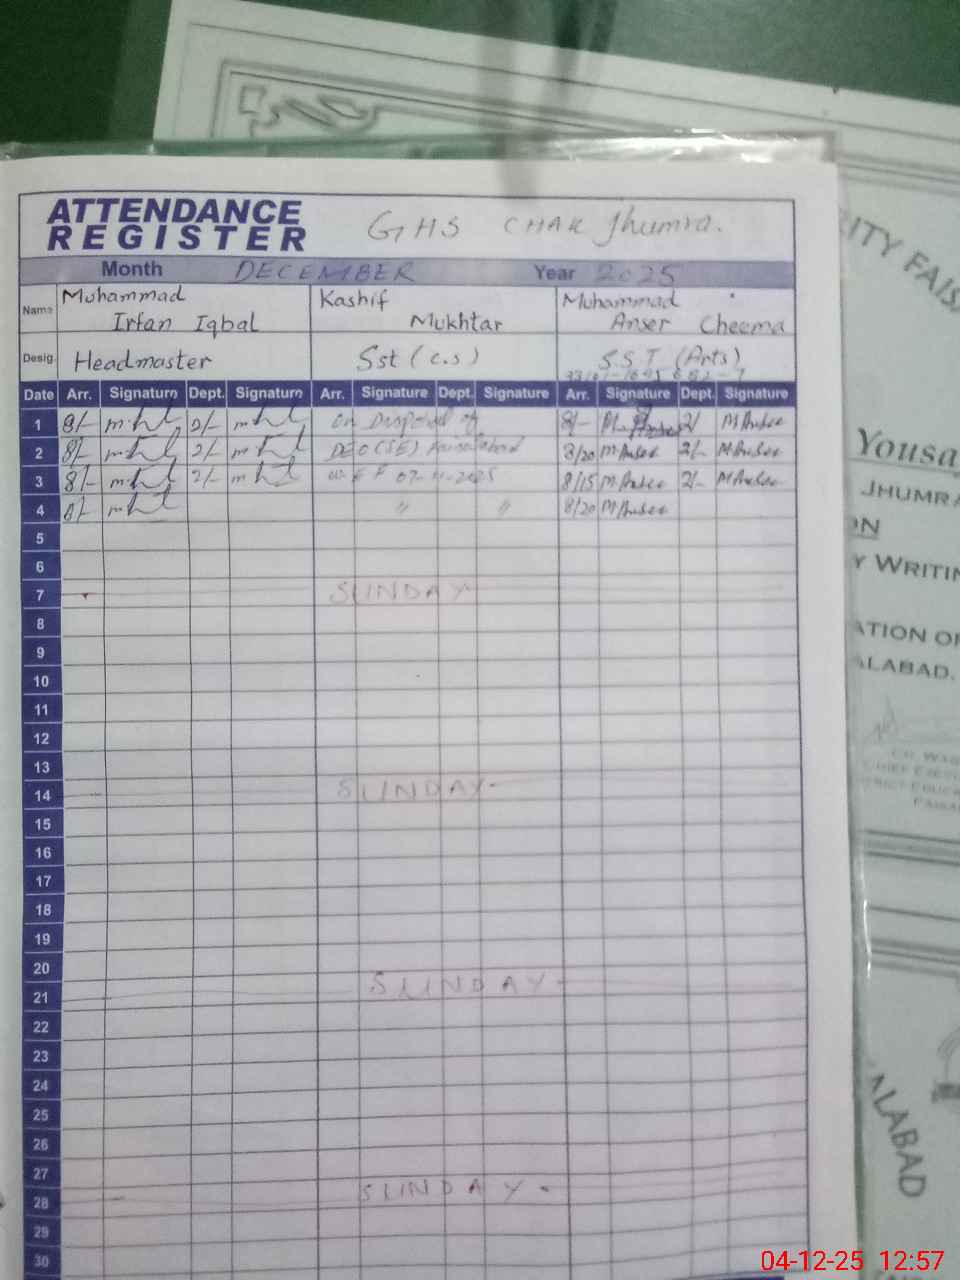 ATTENDANCE
REGISTER
GHS CHAK Jhumra.
Month DECEMBER Year 2025
Name Muhammad Irfan Iqbal Kashif Mukhtar Muhammad Anser Cheema
Desig. Headmaster Sst (C.S) S.S.T (Arts)
Date Arr. Signature Dept. Signature Arr. Signature Dept. Signature Arr. Signature Dept. Signature
1 8/- 2/- on Disposal of 8/- 2/- M Anser
2 8/- 2/- DEO (SE) Faisalabad 8/20 M Anser 2/- M Anser
3 8/- 2/- 8/15 M Anser 2/- M Anser
4 8/- " " 8/20 M Anser
5
6
7 SUNDAY
8
9
10
11
12
13
14 SUNDAY-
15
16
17
18
19
20
21 SUNDAY-
22
23
24
25
26
27
28 SUNDAY-
29
30
ITY FAIS
Yousa
JHUMRA
ON
Y WRITIN
ATION OF
ALABAD.
CHIEF EXECU
FAISA
ALABAD
04-12-25 12:57